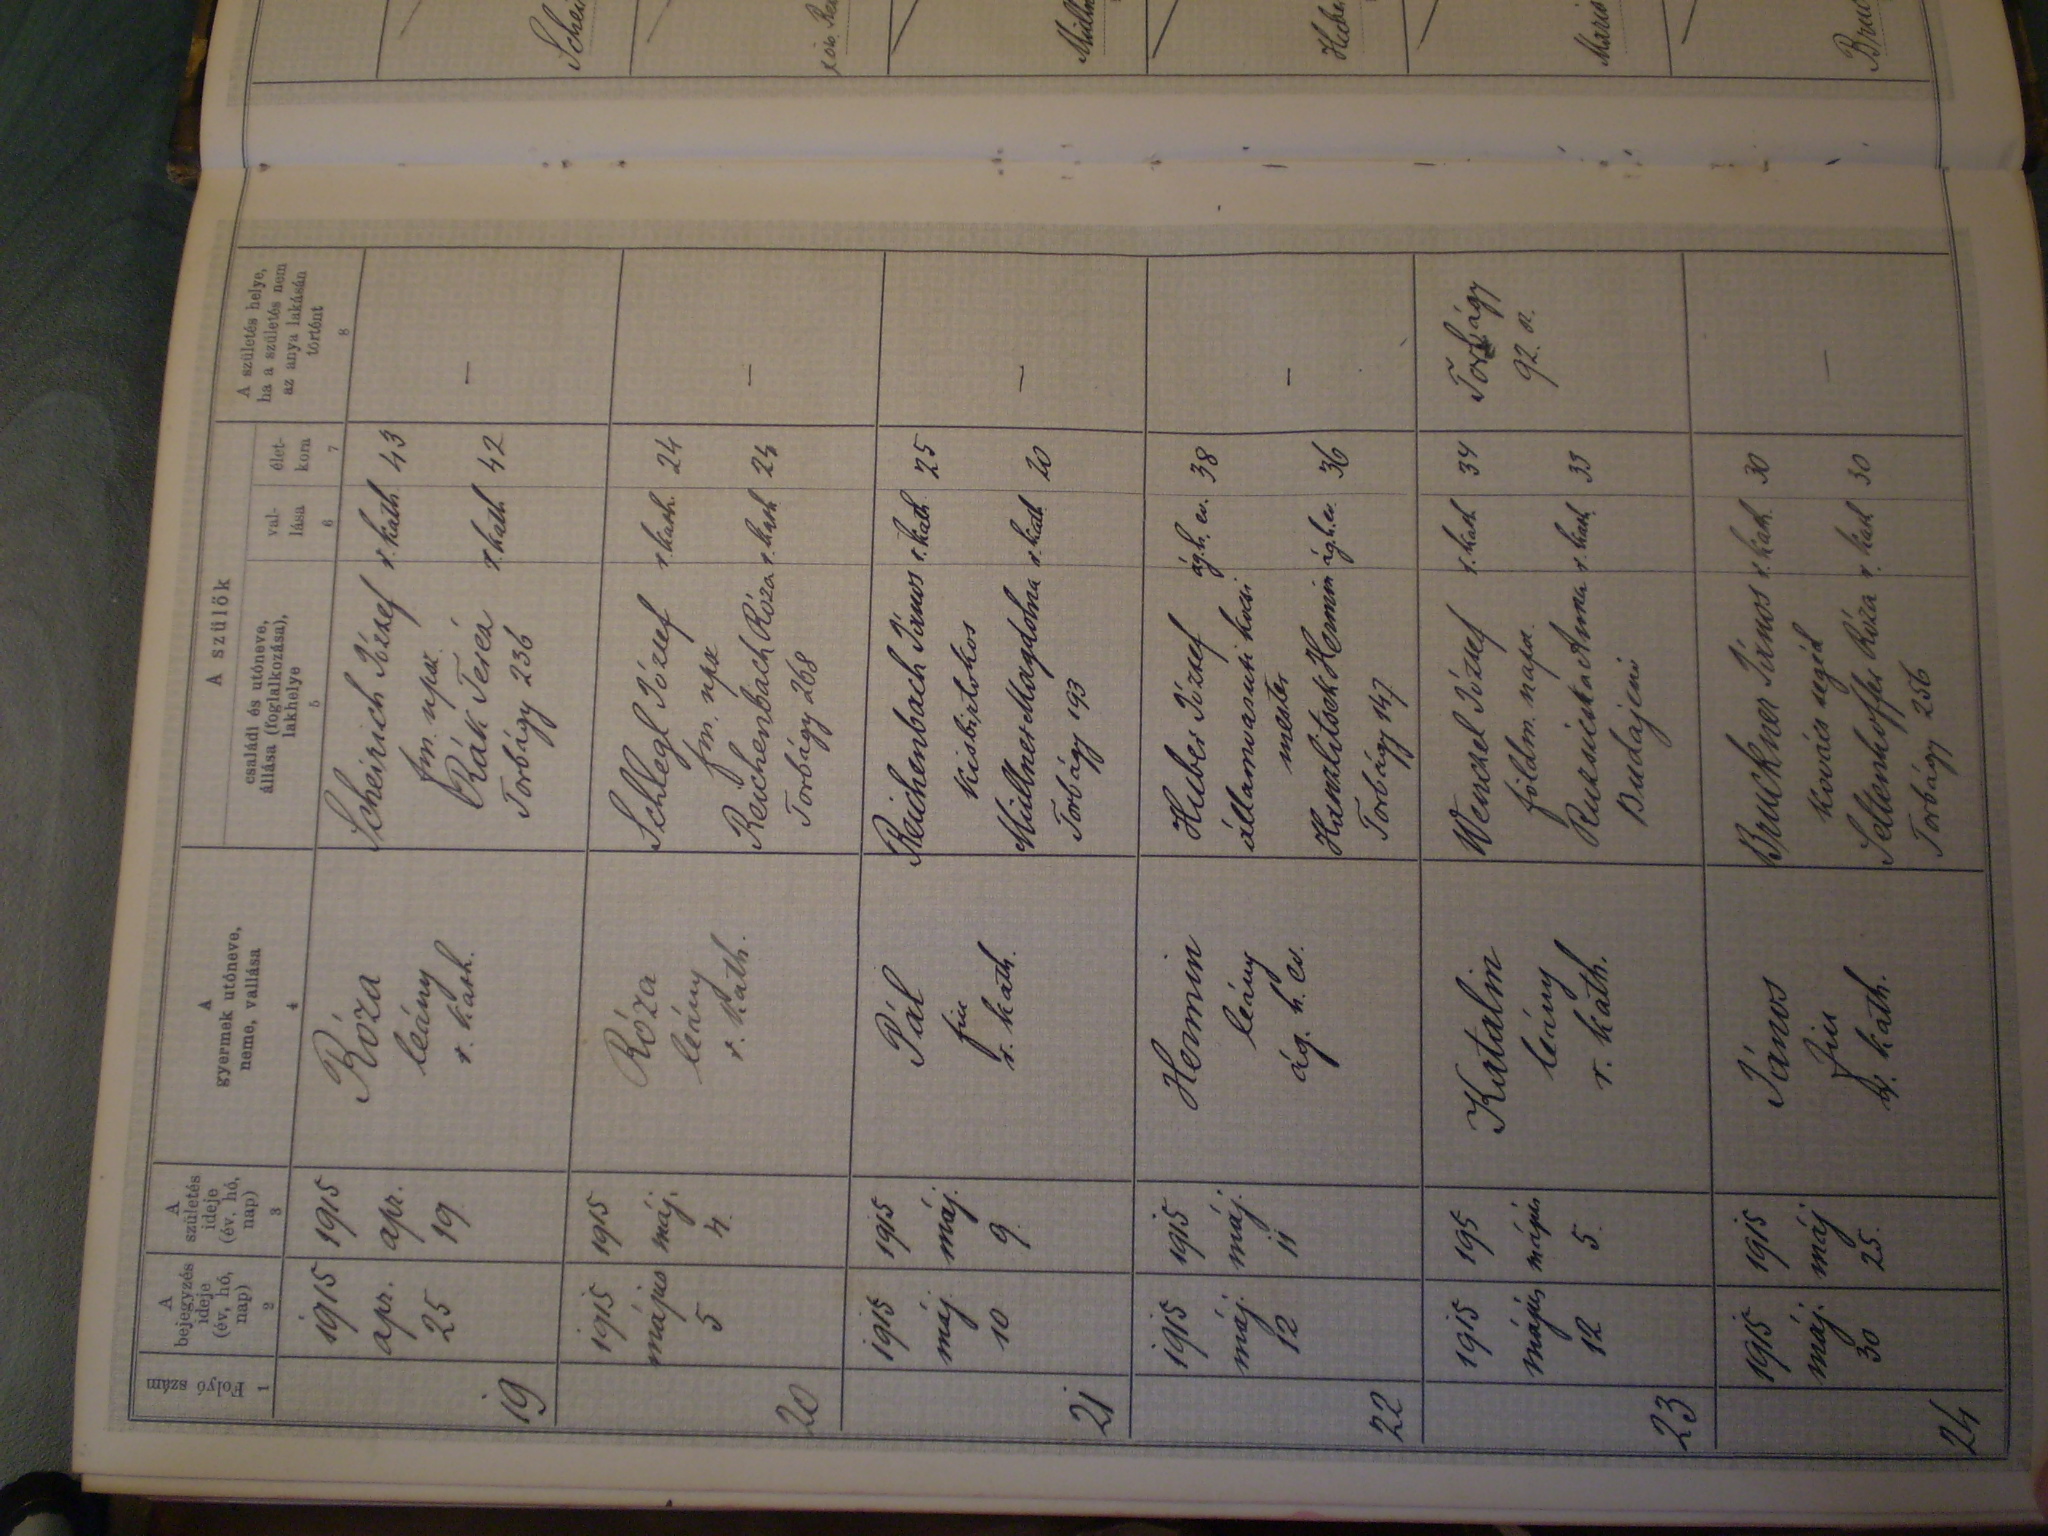 1
Folyó szám
A
bejegyzés
ideje
(év, hó,
nap)
2
A
születés
ideje
(év, hó,
nap)
3
A
gyermek utóneve,
neme, vallása
4
A szülők
családi és utóneve,
állása (foglalkozása),
lakhelye
5
val-
lása
6
élet-
kora
7
A születés helye,
ha a születés nem
az anya lakásán
történt
8
19
1915
apr.
25
1915
apr.
19.
Róza
leány
r. kath.
Scheirich József r. kath 43
fm. npsz.
Rák Teréz r. kath 42
Torbágy 236
—
20
1915
május
5
1915
máj.
4.
Róza
leány
r. kath.
Schlegl József r. kath. 24
fm. npsz
Reichenbach Róza r. kath 23
Torbágy 268
—
21
1915
máj.
10
1915
máj.
9.
Pál
fiu
r. kath.
Reichenbach János r. kath. 25
Kisbirtokos
Müllner Magdolna r. kath 20
Torbágy 193
—
22
1915
máj.
12
1915
máj.
11
Hermin
leány
ág. h. ev.
Huber József ág. h. ev. 38
államvasuti kocsi
mester
Hanzlitsek Hermin ág. h. ev. 36
Torbágy 147
—
23
1915
május
12
195
május
5.
Katalin
leány
r. kath.
Wenczel József r. kath 34
földm. napsz.
Anna r. kath. 33
Budajenő
Torbágy
92. sz.
24
1915
máj.
30
1915
máj
25.
János
fiu
r. kath.
Bruckner János r. kath. 30
Kovács segéd
Seltenhoffer Róza r. kath 30
Torbágy 256
—